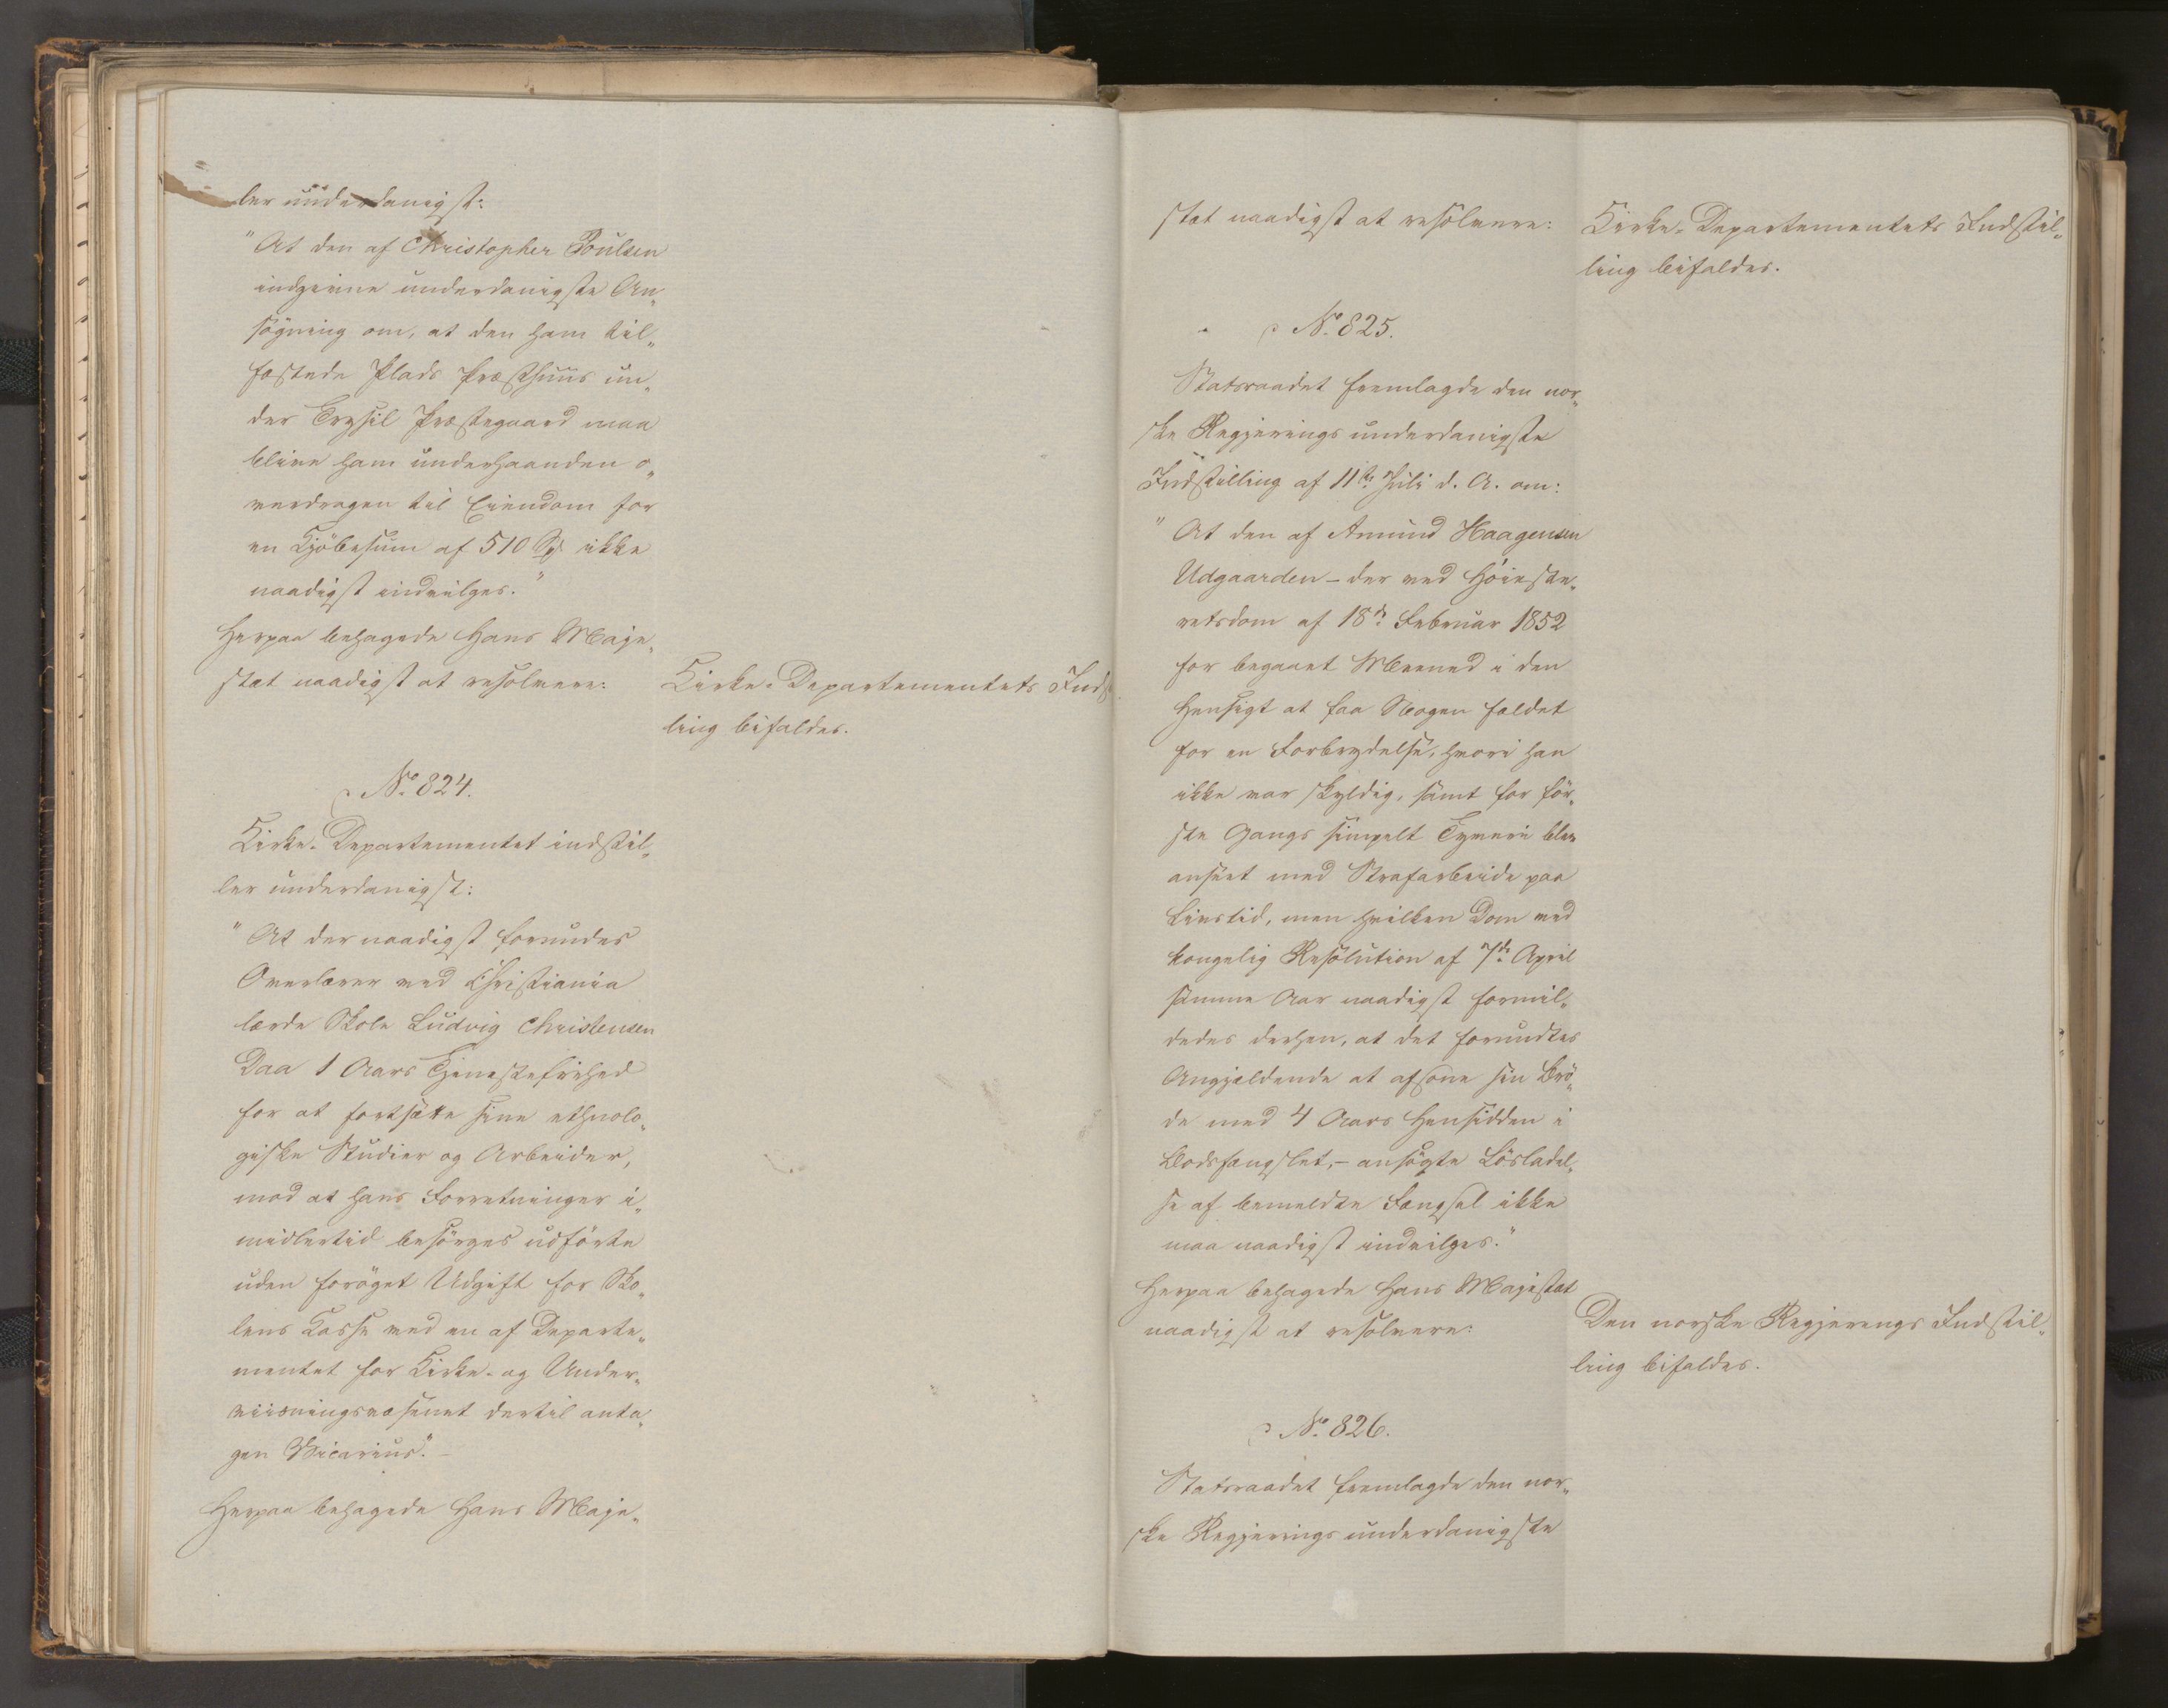 ler underdanigst:
"At den af Christopher Poulsen
indgivne underdanigste An„
søgning om, at den ham til„
fæstede Plads Præsthuus un„
der Trysil Præstegaard maa
blive ham underhaanden o„
verdragen til Eiendom for
en Kjöbesum af 510 Spd ikke
naadigst indvilges."
Herpaa behagede Hans Maje„
stæt naadigst at resolvere:
Kirke-Departementets Indst
ling bifaldes.
No. 824.
Kirke-Departementet indstil„
ler underdanigst:
"At der naadigst forundes
Overlærer ved Christiania
lærde Skole Ludvig Christensen
Daa 1 Aars Tjenestefrihed
for at fortsætte sine ethnolo„
giske Studier og Arbeider,
mod at hans Forretninger i„
midlertid besörges udförte
uden foröget Udgift for Sko„
lens Casse ved en af Departe„
mentet for Kirke- og Under„
viisningsvæsenet dertil anta„
gen Vicarius." –
Herpaa behagede Hans Maje„
stæt naadigst at resolvere:
Kirke-Departementets Indstil„
ling bifaldes.
No. 825.
Statsraadet fremlagde den nor„
ske Regjerings underdanigste
Indstilling af 11te Juli d. A. om:
"At den af Amund Haagensen
Udgaarden – der ved Höieste„
retsdom af 18de Februar 1852
for begaaet Meened i den
Hensigt at faa Nogen fældet
for en Forbrydelse, hvori han
ikke var skyldig, samt for för„
ste Gangs simpelt Tyveri blev
anseet med Strafarbeide paa
Livstid, men hvilken Dom ved
kongelig Resolution af 7de April
samme Aar naadigst formil„
dedes derhen, at det forundtes
Angjældende at afsone sin Brö„
de med 4 Aars Hensidden i
Bodsfængslet, – ansögte Lösladel„
se af bemeldte Fængsel ikke
maa naadigst indvilges."
Herpaa behagede Hans Majestæt
naadigst at resolvere:
Den norske Regjerings Indstil„
ling bifaldes.
No. 826.
Statsraadet fremlagde den nor„
ske Regjerings underdanigste